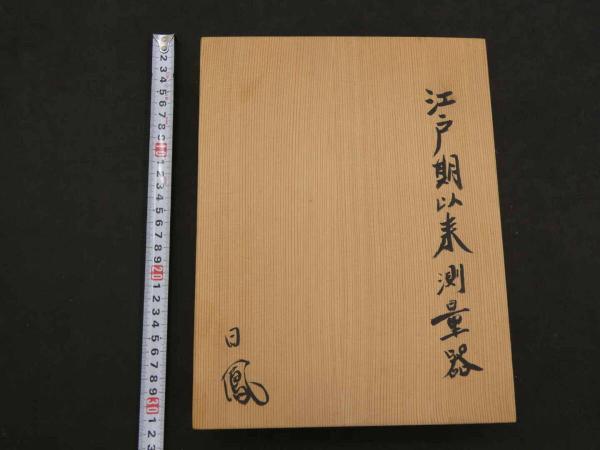 江戸期以来測量器
日鳳
2 3 4 5 6 7 8 9 10 1 2 3 4 5 6 7 8 9 20 1 2 3 4 5 6 7 8 9 30 1 2 3